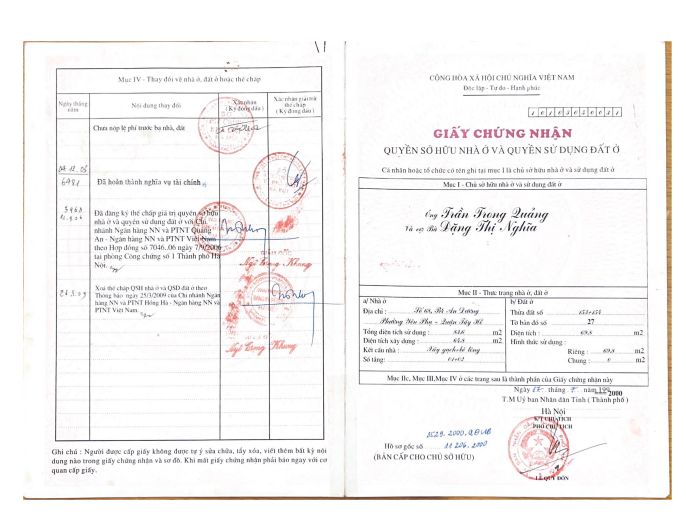 Mục IV - Thay đổi về nhà ở, đất ở hoặc thế chấp
Ngày tháng năm
Nội dung thay đổi
Xác nhận
( Ký đóng dấu )
Xác nhận giải trừ thế chấp
( Ký đóng dấu )
Chưa nộp lệ phí trước bạ nhà, đất
Đã hoàn thành nghĩa vụ tài chính
Đã đăng ký thế chấp giá trị quyền sở hữu
nhà ở và quyền sử dụng đất ở với Chi
nhánh Ngân hàng NN và PTNT Quảng
An - Ngân hàng NN và PTNT Việt Nam
theo Hợp đồng số 7046..06 ngày 7/9/2006
tại phòng Công chứng số 1 Thành phố Hà
Nội.
Ngô Trung Khang
Xoá thế chấp QSH nhà ở và QSD đất ở theo
Thông báo ngày 25/3/2009 của Chi nhánh Ngân
hàng NN và PTNT Hồng Hà - Ngân hàng NN và
PTNT Việt Nam.
Ngô Trung Khang
Ghi chú : Người được cấp giấy không được tự ý sửa chữa, tẩy xóa, viết thêm bất kỳ nội
dung nào trong giấy chứng nhận và sơ đồ. Khi mất giấy chứng nhận phải báo ngay với cơ
quan cấp giấy.
CỘNG HÒA XÃ HỘI CHỦ NGHĨA VIỆT NAM
Độc lập - Tự do - Hạnh phúc
GIẤY CHỨNG NHẬN
QUYỀN SỞ HỮU NHÀ Ở VÀ QUYỀN SỬ DỤNG ĐẤT Ở
Cá nhân hoặc tổ chức có tên ghi tại mục I là chủ sở hữu nhà ở và sử dụng đất ở
Mục I - Chủ sở hữu nhà ở và sử dụng đất ở
Ông Trần Trọng Quảng
Và vợ Bà Đặng Thị Nghĩa
Mục II - Thực trạng nhà ở, đất ở
a/ Nhà ở
Địa chỉ : Số 68, Bờ An Dương
Phường Yên Phụ - Quận Tây Hồ
Tổng diện tích sử dụng : m2
Diện tích xây dựng : m2
Kết cấu nhà : Xây gạch bê tông
Số tầng: 01+02
b/ Đất ở
Thửa đất số
Tờ bản đồ số 27
Diện tích : 69.8 m2
Hình thức sử dụng :
Riêng : 69.8 m2
Chung : 0 m2
Mục IIc, Mục III,Mục IV ở các trang sau là thành phần của Giấy chứng nhận này
Ngày tháng năm 2000
T.M Uỷ ban Nhân dân Tỉnh ( Thành phố )
Hà Nội
K/T CHỦ TỊCH
PHÓ CHỦ TỊCH
Hồ sơ gốc số
(BẢN CẤP CHO CHỦ SỞ HỮU)
LÊ QUÝ ĐÔN